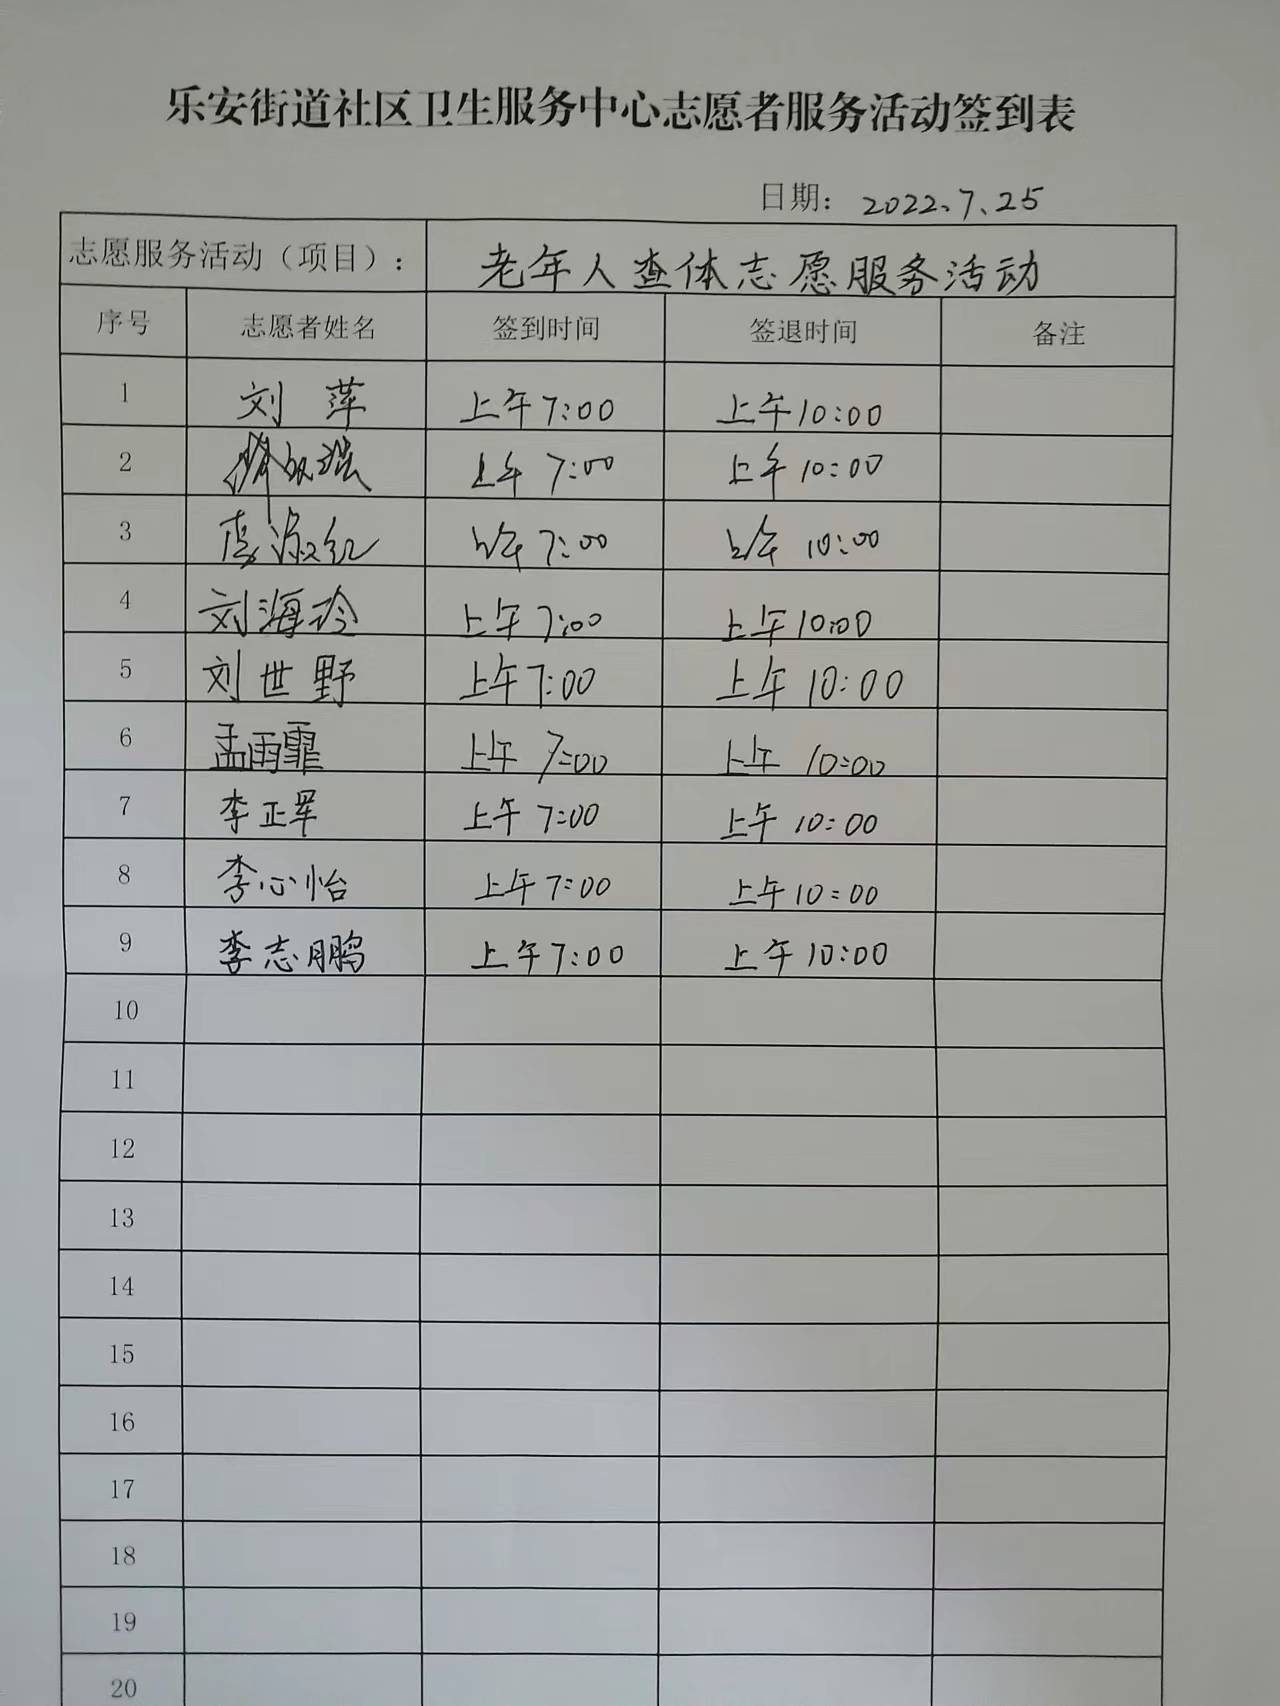 乐安街道社区卫生服务中心志愿者服务活动签到表
日期： 2022.7.25
志愿服务活动（项目）： 老年人查体志愿服务活动
序号 志愿者姓名 签到时间 签退时间 备注
1 刘萍 上午7:00 上午10:00
2 上午7:00 上午10:00
3 上午7:00 上午10:00
4 刘海玲 上午7:00 上午10:00
5 刘世野 上午7:00 上午10:00
6 孟雨霏 上午7:00 上午10:00
7 李正军 上午7:00 上午10:00
8 李心怡 上午7:00 上午10:00
9 李志鹏 上午7:00 上午10:00
10
11
12
13
14
15
16
17
18
19
20